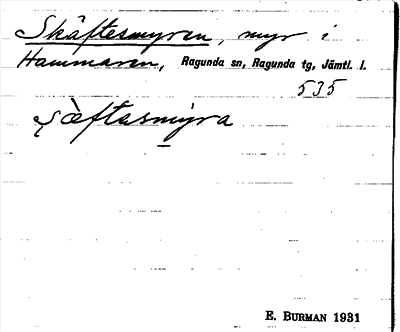 Skäftesmyren, myr i
Hammaren, Ragunda sn, Ragunda tg, Jämtl. l.
535
ʂæ̀ftasmyra
E. BURMAN 1931